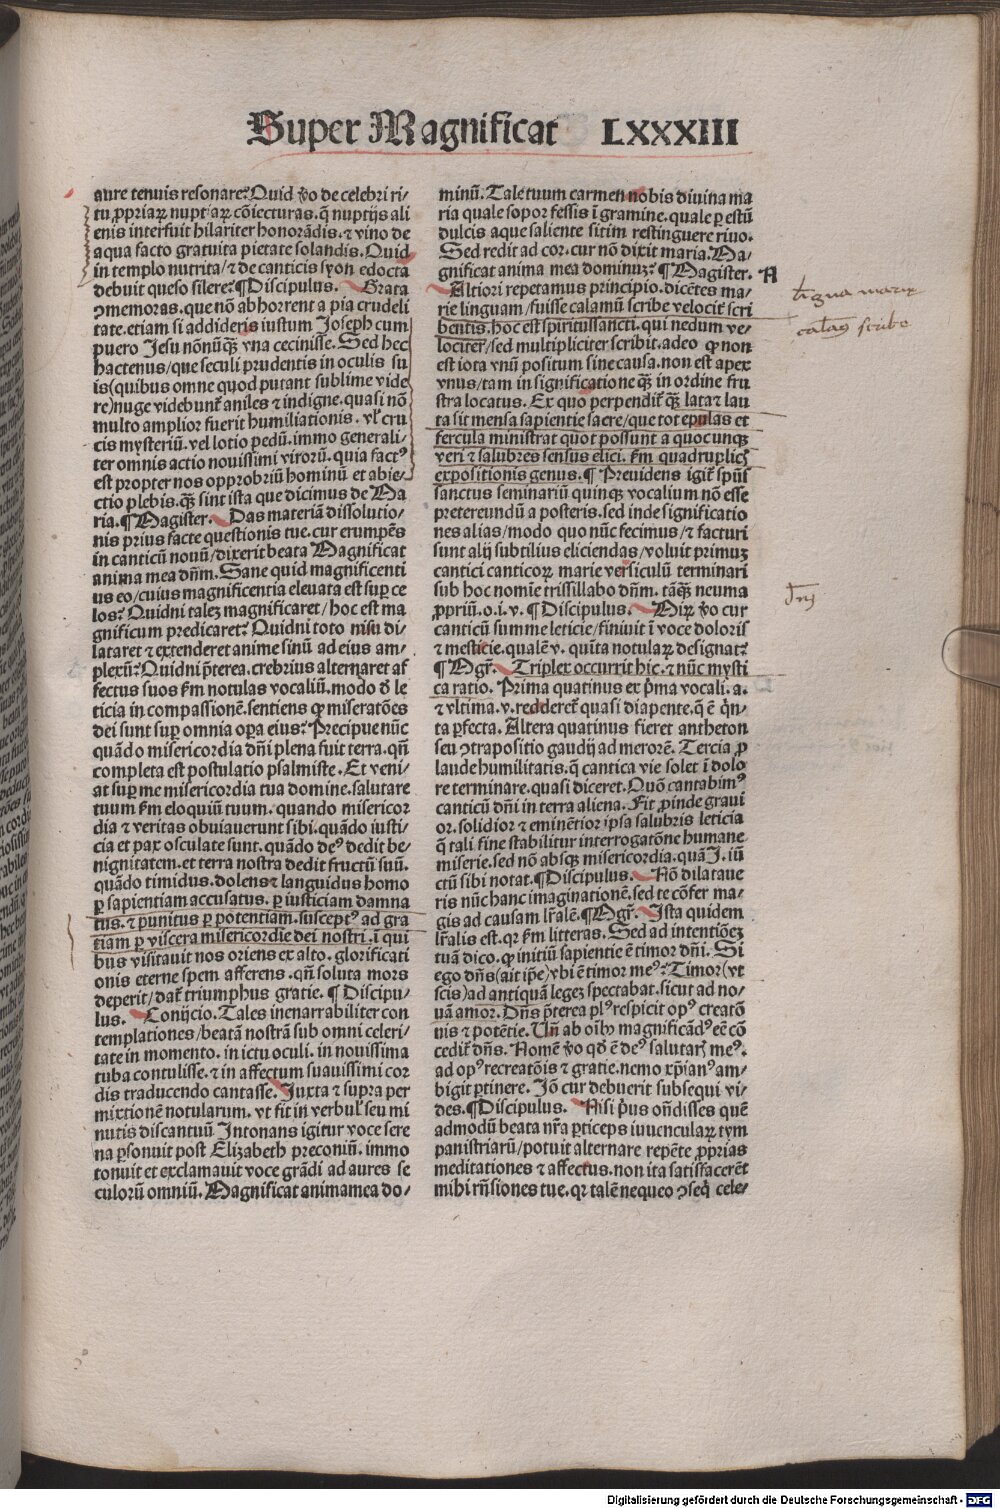 Super Magnificat LXXXIII
aure tenuis resonare? Quid ṽo de celebri ri⸗
tu ꝓpriaꝝ nuptiaꝝ cōiecturas. q̄ nuptijs ali
enis interfuit hilariter honorādis. ⁊ vino de
aqua facto gratuita pietate solandis. Quid
in templo nutrita/⁊ de canticis syon edocta
debuit queso silere? ¶ Discipulus. Grata
ꝯmemoras. que nō abhorrent a pia crudeli
tate. etiam si addideris iustum Joseph cum
puero Jesu nōnūqꝫ vna cecinisse. Sed hec
hactenus/que seculi prudentis in oculis su
is(quibus omne quod putant sublime vide
re)nuge videbunt̄ aniles ⁊ indigne. quasi nō
multo amplior fuerit humiliationis. vl̓ cru
cis mysteriū. vel lotio pedū. immo generali⸗
ter omnis actio nouissimi virorū. quia factꝰ
est propter nos opprobriū hominū et abie⸗
ctio plebis. qꝫ sint ista que dicimus de Ma
ria. ¶ Magister. Das materiā dissolutio⸗
nis prius facte questionis tue. cur erumpēs
in canticū nouū/dixerit beata Magnificat
anima mea dn̄m. Sane quid magnificenti
us eo/cuius magnificentia eleuata est suꝑ ce
los? Quidni talez magnificaret/hoc est ma
gnificum predicaret? Quidni toto nisu di⸗
lataret ⁊ extenderet anime sinū ad eius am⸗
plexū? Quidni p̄terea. crebrius alternaret af
fectus suos ẜm notulas vocaliū. modo ð le
ticia in compassionē. sentiens ꝙ miseratōes
dei sunt suꝑ omnia oꝑa eius? Precipue nūc
quādo misericordia dn̄i plena fuit terra. qn̄
completa est postulatio psalmiste. Et veni⸗
at suꝑ me misericordia tua domine. salutare
tuum ẜm eloquiū tuum. quando misericor
dia ⁊ veritas obuiauerunt sibi. quādo iusti⸗
cia et pax osculate sunt. quādo deꝰ dedit be⸗
nignitatem. et terra nostra dedit fructū suū.
quādo timidus. dolens ⁊ languidus homo
ꝑ sapientiam accusatus. ꝑ iusticiam damna
tus. ⁊ punitus ꝑ potentiam. susceptꝰ ad gra
tiam ꝑ viscera misericordie dei nostri. ī qui
bus visitauit nos oriens ex alto. glorificati
onis eterne spem afferens. qn̄ soluta mors
deperit/dat̄ triumphus gratie. ¶ Discipu⸗
lus. Conijcio. Tales inenarrabiliter con
templationes/beatā nostrā sub omni celeri⸗
tate in momento. in ictu oculi. in nouissima
tuba contulisse. ⁊ in affectum suauissimi cor
dis traducendo cantasse. Juxta ⁊ supra per
mixtionem notularum. vt fit in verbul̓ seu mi
nutis discantuū Intonans igitur voce sere
na ꝑsonuit post Elizabeth preconiū. immo
tonuit et exclamauit voce grādi ad aures se
culorū omniū. Magnificat anima mea do⸗
minū. Tale tuum carmen nobis diuina ma
ria quale sopor fessis ī gramine. quale ꝑ estū
dulcis aque saliente sitim restinguere riuo.
Sed redit ad cor. cur nō dixit maria. Ma⸗
gnificat anima mea dominuz? ¶ Magister.
A
Altiori repetamus principio. dicētes ma⸗
rie linguam/fuisse calamū scribe velocit̄ scri
bentis. hoc est spiritussancti. qui nedum ve⸗
lociter/sed multipliciter scribit. adeo ꝙ non
est iota vnū positum sine causa. non est apex
vnus/tam in significatione qꝫ in ordine fru
stra locatus. Ex quo perpendit̄ qꝫ lata ⁊ lau
ta sit mensa sapientie sacre/que tot epulas et
fercula ministrat quot possunt a quocunqꝫ
veri ⁊ salubres sensus elici. ẜm quadruplicē
expositionis genus. ¶ Preuidens igit̄ spūs
sanctus seminariū quinqꝫ vocalium nō esse
pretereundū a posteris. sed inde significatio
nes alias/modo quo nūc fecimus/⁊ facturi
sunt alij subtilius eliciendas/voluit primuꝫ
cantici canticoꝝ marie versiculū terminari
sub hoc nomīe trissillabo dn̄m. tāqꝫ neuma
ꝓpriū. o. i. v. ¶ Discipulus. Miꝝ ṽo cur
canticū summe leticie/finiuit ī voce doloris
⁊ mesticie. qualē v. quīta notulaꝝ designat?
¶ Mgr̄. Triplex occurrit hic. ⁊ nūc mysti
ca ratio. Prima quatinus ex p̄ma vocali. a.
⁊ vltima. v. redderet̄ quasi diapente. q̄ ē q̄n⸗
ta ꝑfecta. Altera quatinus fieret antheton
seu ꝯtrapositio gaudij ad merorē. Tercia ꝓ
laude humilitatis. q̄ cantica vie solet ī dolo
re terminare. quasi diceret. Quō cantabimꝰ
canticū dn̄i in terra aliena. Fit ꝓinde graui
or. solidior ⁊ eminētior ip̄sa salubris leticia
q̄ tali fine stabilitur interrogatōne humane
miserie. sed nō absqꝫ misericordia. quā J. iū
ctū sibi notat. ¶ Discipulus. Nō dilataue
ris nūc hanc imaginationē. sed te cōfer ma⸗
gis ad causam lr̄alē. ¶ Mgr̄. Ista quidem
lr̄alis est. qꝛ ẜm litteras. Sed ad intentiōeꝫ
tuā dico. ꝙ initiū sapientie ē timor dn̄i. Si
ego dn̄s(ait ip̄e)vbi ē timor meꝰ? Timor(vt
scis)ad antiquā legeꝫ spectabat. sicut ad no⸗
uā amor. Dn̄s p̄terea plꝰ respicit opꝰ creatō
nis ⁊ potētie. Vn̄ ab oīb̓ magnificādꝰ eē cō
cedit̄ dn̄s. Nomē ṽo qd̓ ē deꝰ salutar̄ meꝰ.
ad opꝰ recreatōis ⁊ gratie. nemo xp̄ianꝰ am⸗
bigit ꝑtinere. Jō cur debuerit subsequi vi⸗
des. ¶ Discipulus. Nisi p̄us on̄disses quē
admodū beata nr̄a ꝑticeps iuuenculaꝝ tym
panistriarū/potuit alternare repēte ꝓprias
meditationes ⁊ affectus. non ita satisfacerēt
mihi rn̄siones tue. qꝛ talē nequeo ꝯseq̄ cele⸗
lingua marie
calamus scribe
dn̄s
Digitalisierung gefördert durch die Deutsche Forschungsgemeinschaft - DFG